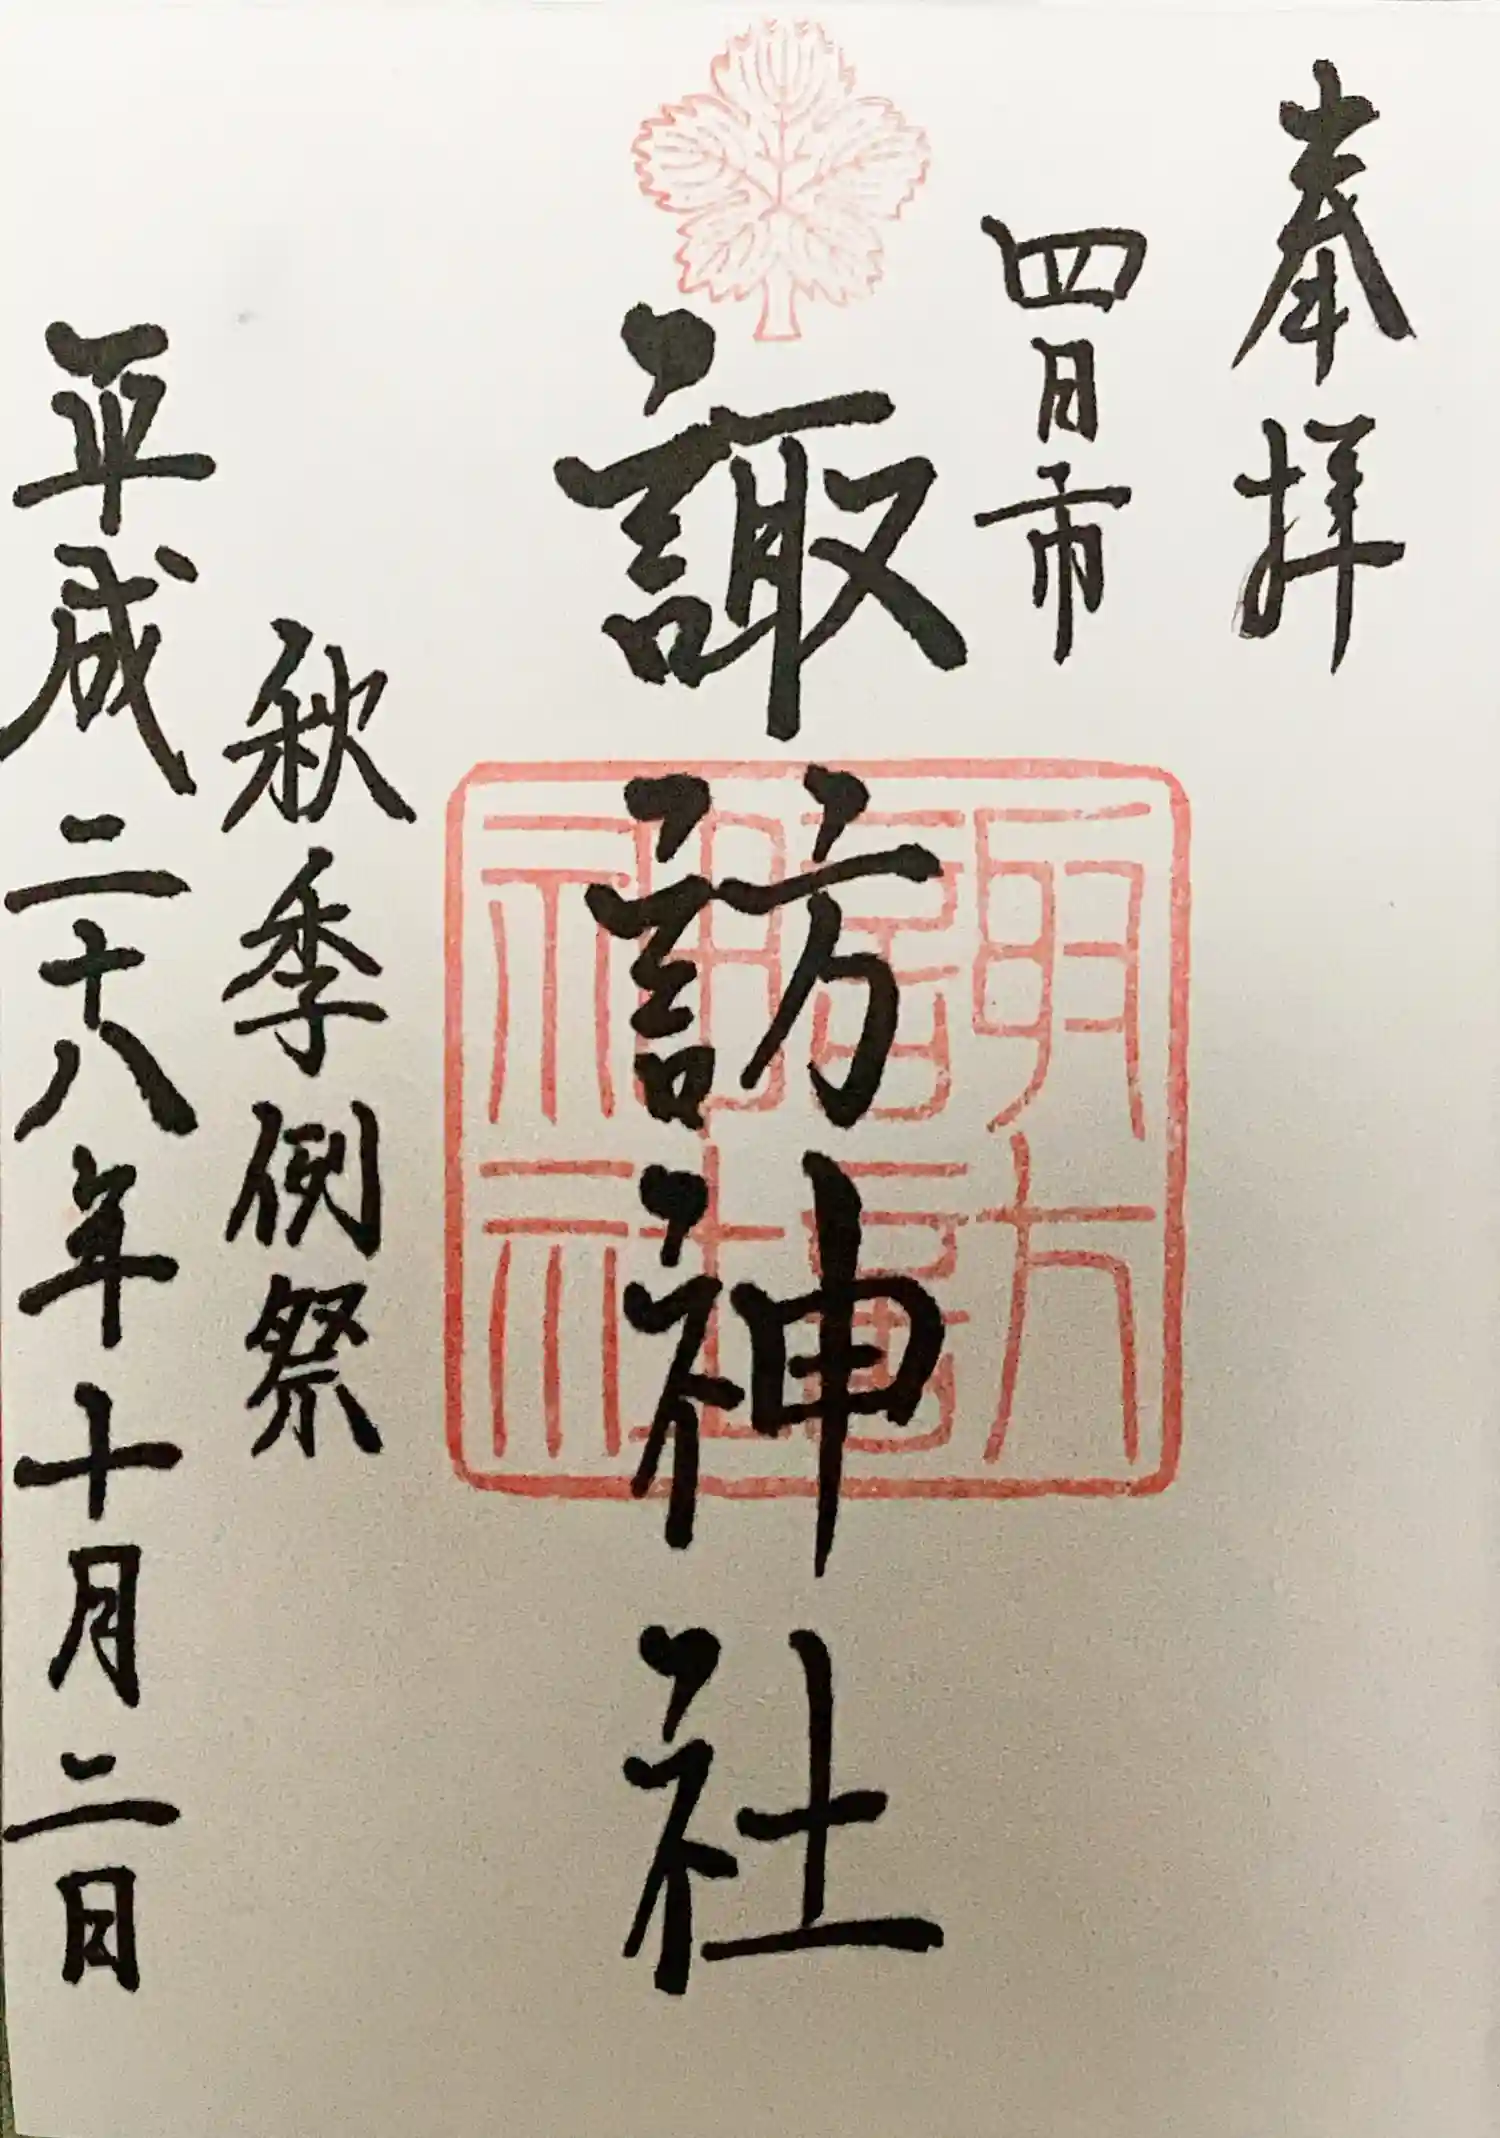 奉拝
四日市
諏訪神社
諏訪神社
秋季例祭
平成二十八年十月二日